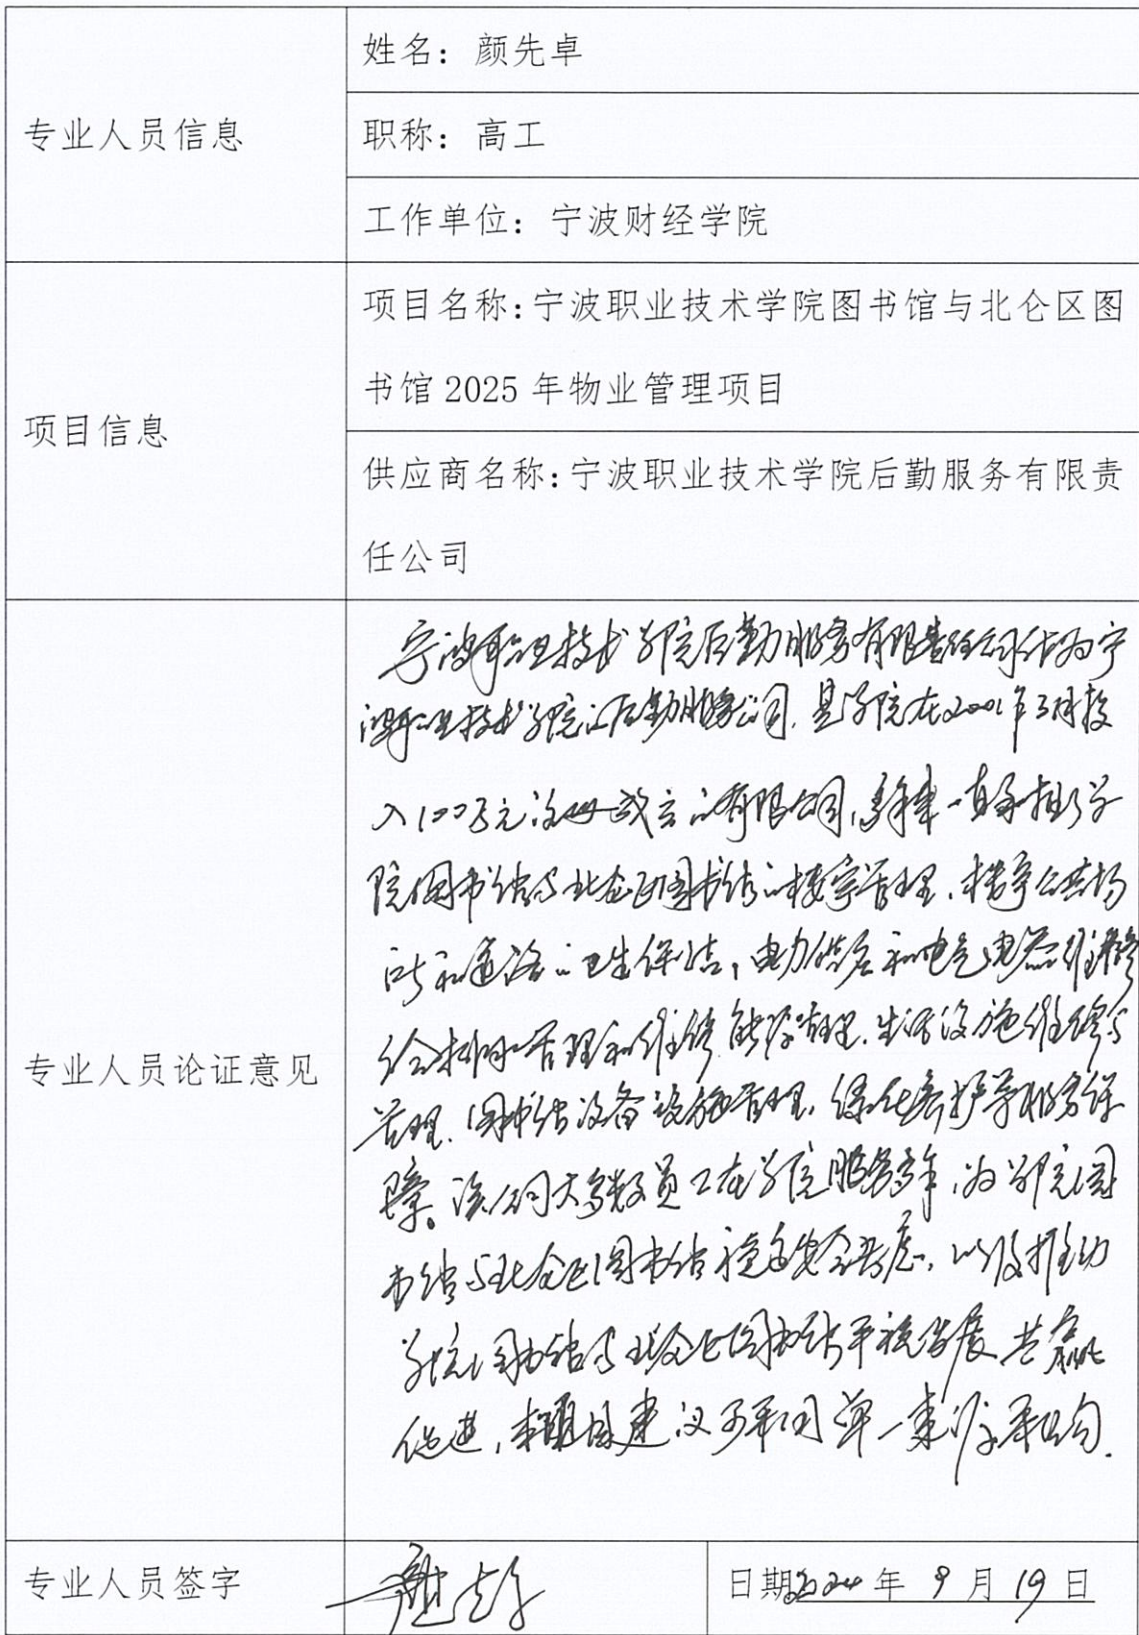 专业人员信息
姓名：颜先卓
职称：高工
工作单位：宁波财经学院
项目信息
项目名称：宁波职业技术学院图书馆与北仑区图
书馆 2025 年物业管理项目
供应商名称：宁波职业技术学院后勤服务有限责
任公司
专业人员论证意见
宁波职业技术学院后勤服务有限责任公司作为宁
波职业技术学院的后勤服务公司，是学院在2001年3月投
入100万元注册成立的有限公司，多年来一直承担学
院图书馆与北仑区图书馆的楼宇管理，楼宇公共场
所和道路的卫生保洁，电力供应和电气电器维修
给排水管理和维修，能源管理，生活设施维修与
管理，图书馆设备设施管理，绿化养护等服务保
障。该公司大多数员工在学院服务多年，为学院图
书馆与北仑区图书馆稳定安全考虑，以及推动
学院图书馆与北仑区图书馆平稳发展，共赢
促进，本项目建议采用单一来源采购.
专业人员签字
日期2024 年 9 月 19 日